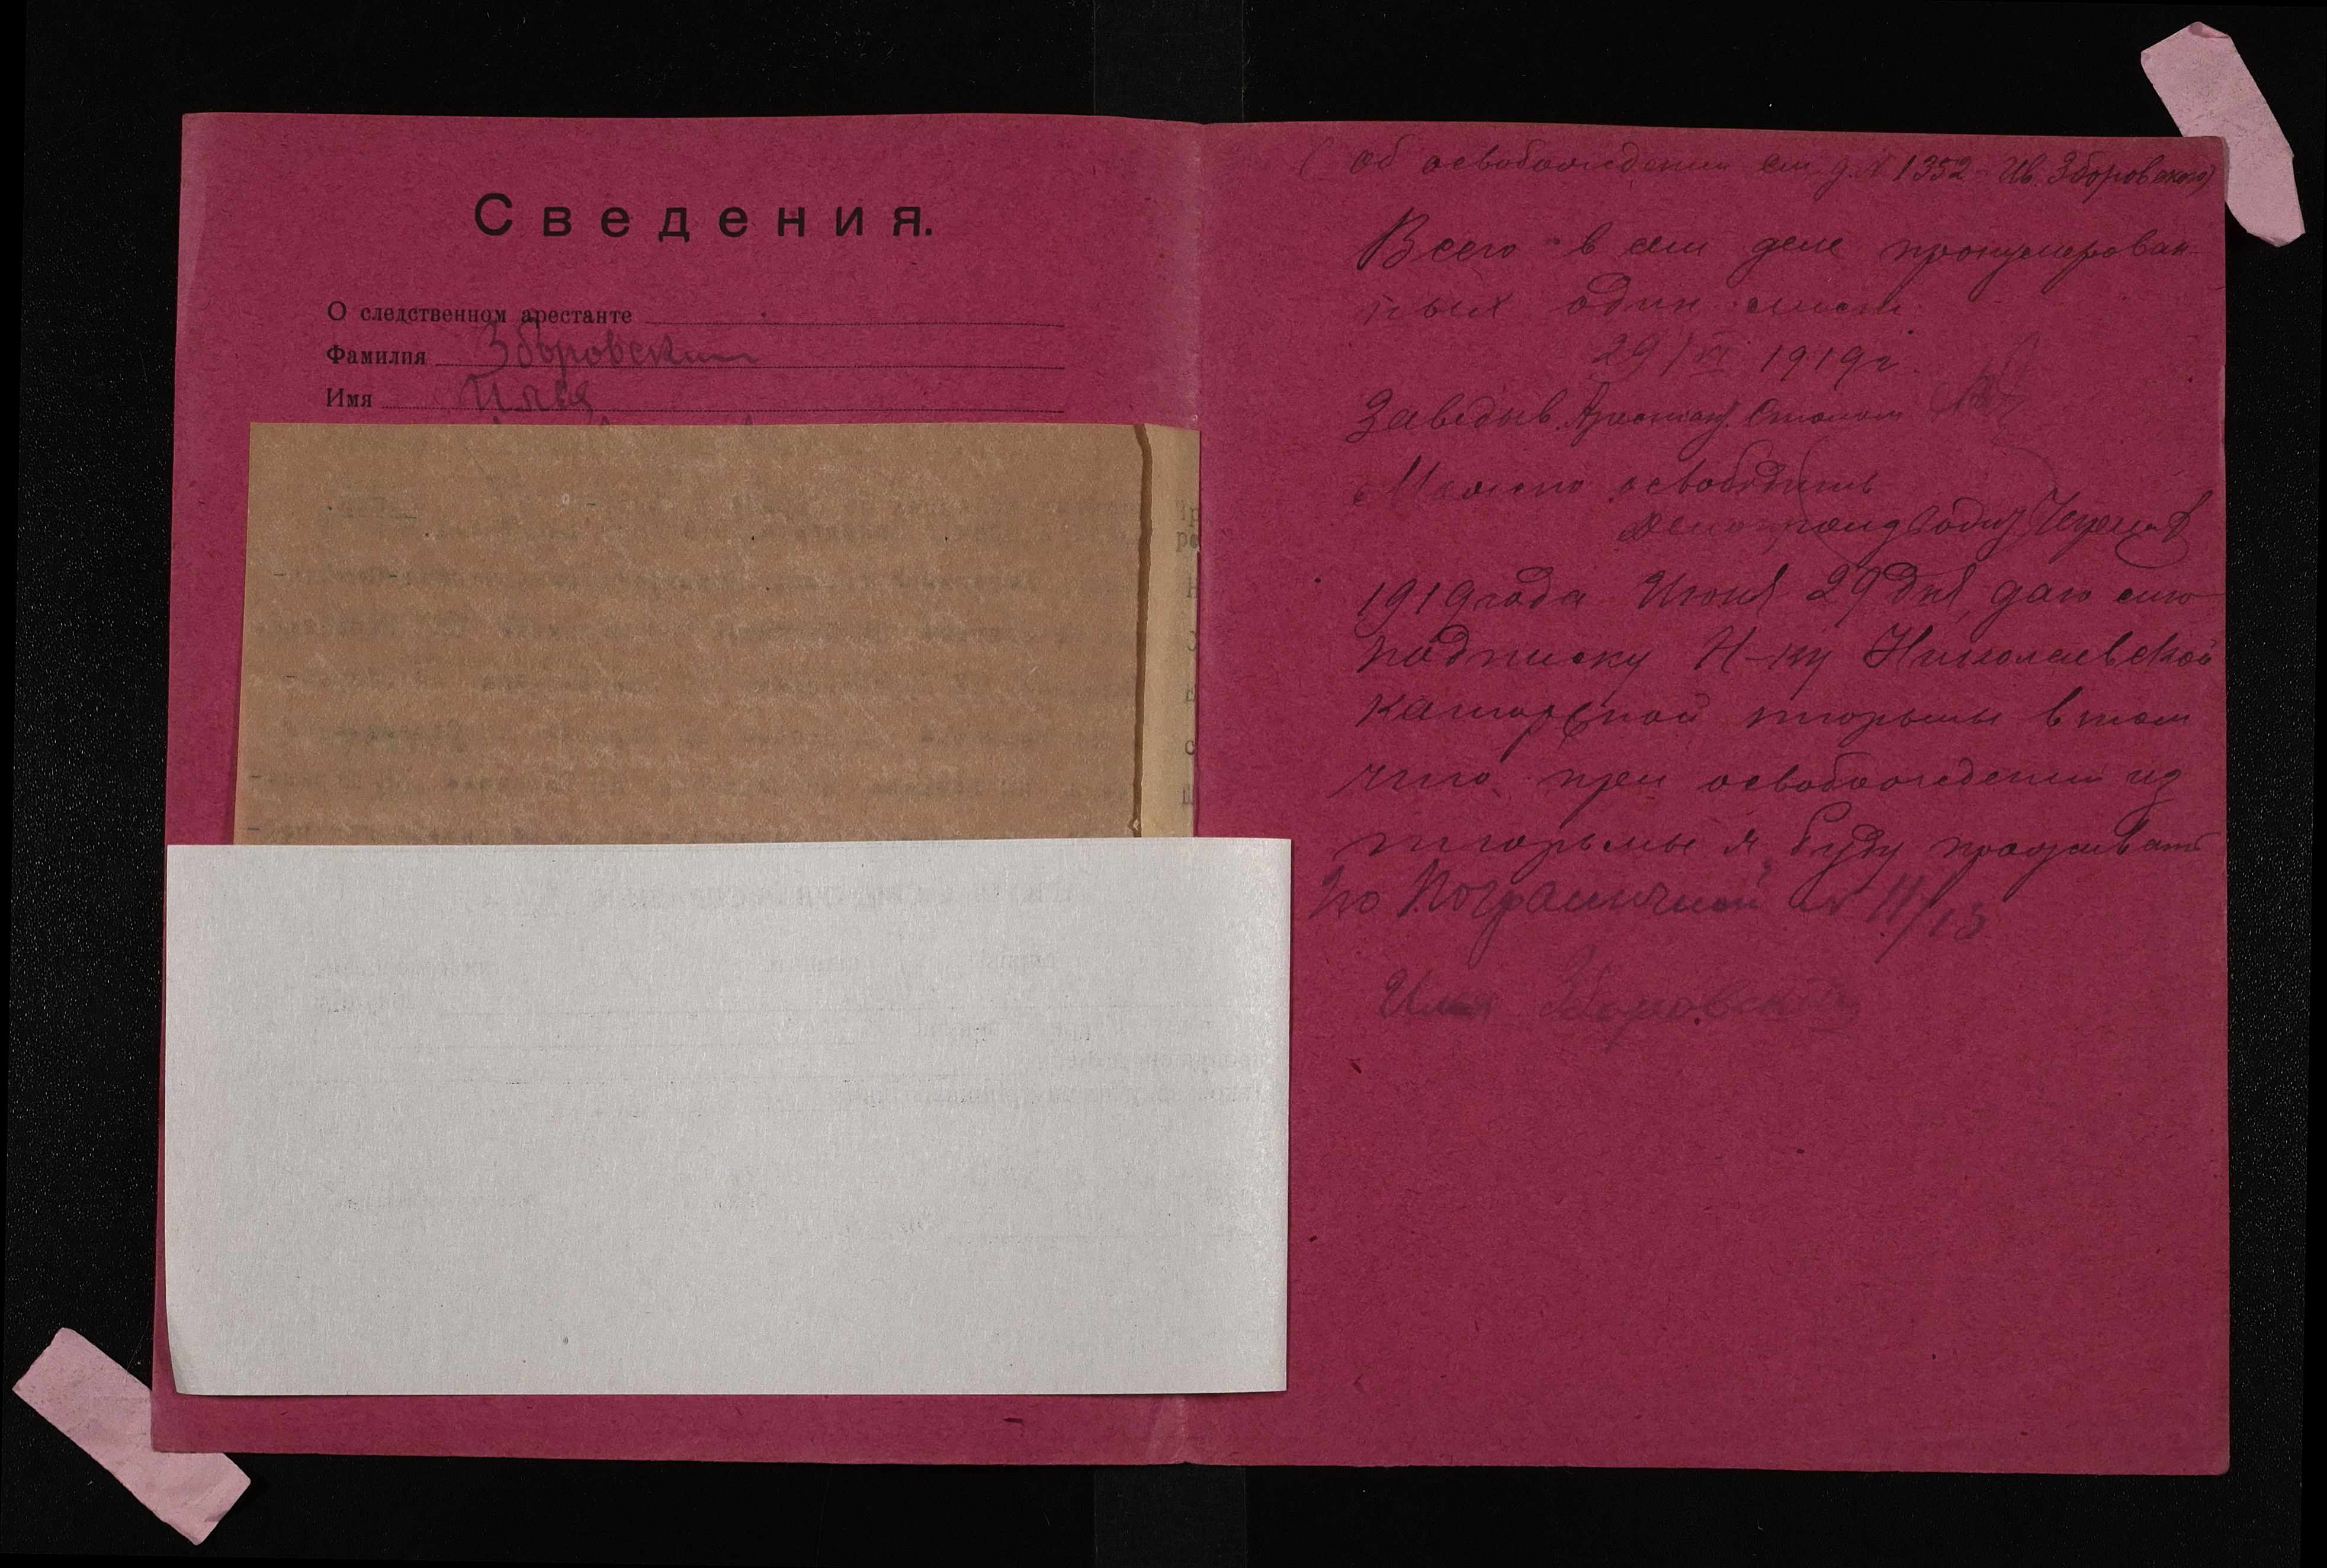 Сведения.
О следственном арестанте
Фамилия Зборовский
Имя Илья
(об освобождении см. д. № 1352 - Ив. Зборовского)
Всего в сем деле пронумерован-
ных один лист
29/VI 1919 г.
Заведыв. Арестант. Столом
Можно освободить
1919 года Июня 29 дня, даю сию
подписку Н-ку Николаевской
каторжной тюрьмы в том
что при освобождении из
тюрьмы я буду проживать
по Пограничной № 11/13
Илья Зборовский